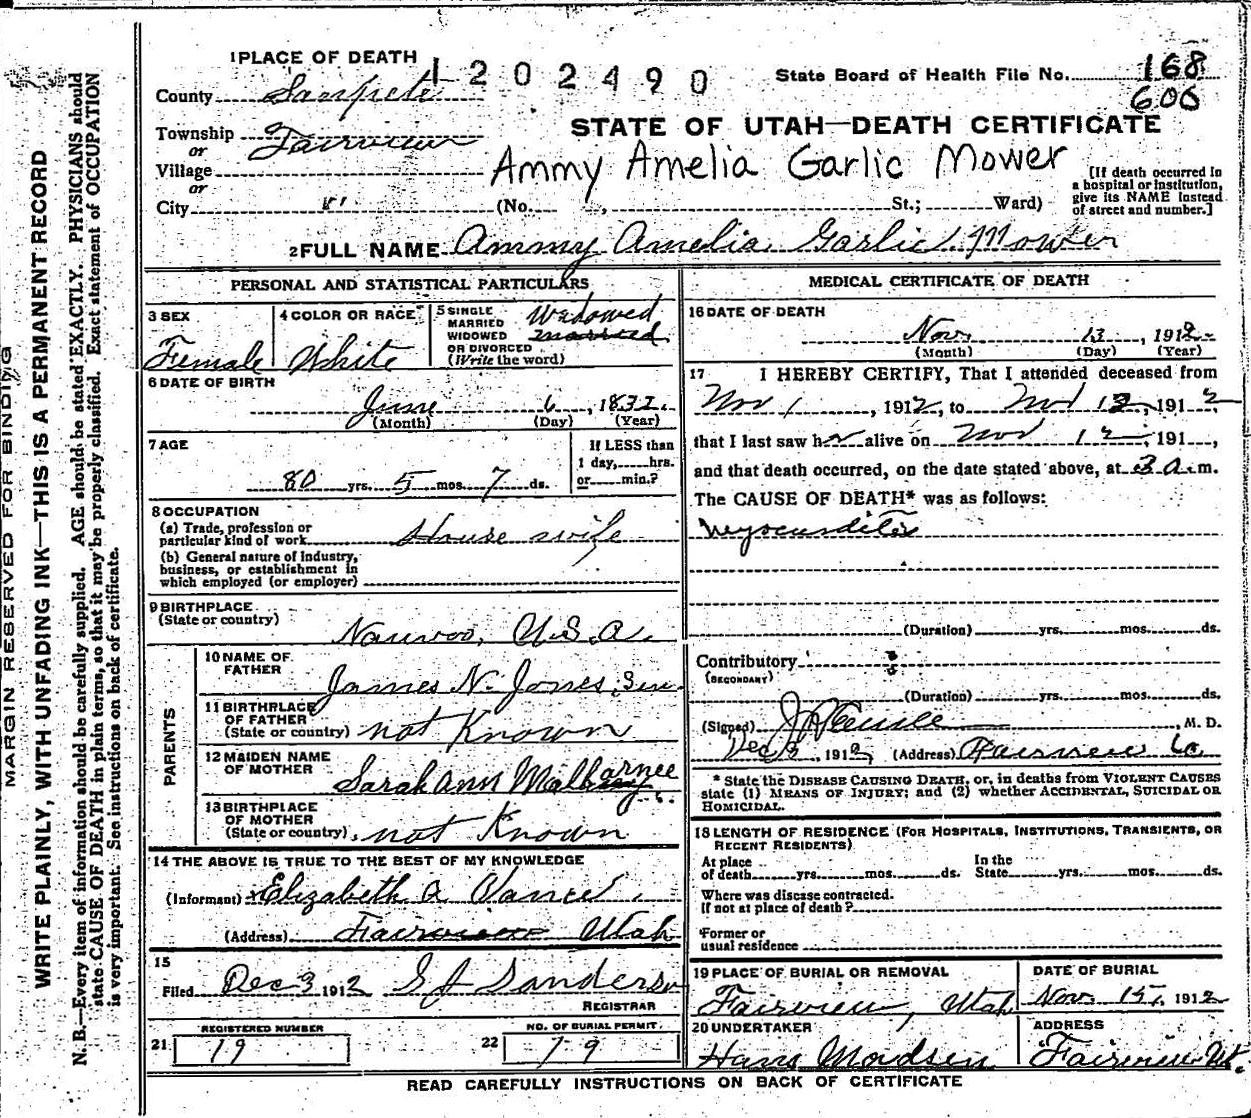 1 PLACE OF DEATH 1202490 State Board of Health File No. 168
County Sanpete 606
STATE OF UTAH—DEATH CERTIFICATE
Township Fairview
or
Village Ammy Amelia Garlic Mower
or
City (No. , St.; Ward)
[If death occurred in
a hospital or institution,
give its NAME instead
of street and number.]
2 FULL NAME Ammy Amelia Garlic Mower
PERSONAL AND STATISTICAL PARTICULARS
3 SEX Female
4 COLOR OR RACE White
5 SINGLE
MARRIED
WIDOWED
OR DIVORCED
(Write the word)
Widowed
married
6 DATE OF BIRTH
June 6, 1832
(Month) (Day) (Year)
7 AGE
80 yrs. 5 mos. 7 ds.
If LESS than
1 day, hrs.
or min.?
8 OCCUPATION
(a) Trade, profession or
particular kind of work House wife
(b) General nature of industry,
business, or establishment in
which employed (or employer)
9 BIRTHPLACE
(State or country) Nauvoo, U.S.A.
PARENTS
10 NAME OF
FATHER James N. Jones, Sen
11 BIRTHPLACE
OF FATHER
(State or country) not Known
12 MAIDEN NAME
OF MOTHER Sarah Ann Malbarnee
13 BIRTHPLACE
OF MOTHER
(State or country) not Known
14 THE ABOVE IS TRUE TO THE BEST OF MY KNOWLEDGE
(Informant) Elizabeth A Vance
(Address) Fairview Utah
15
Filed Dec 3 1912 S J Sanders
REGISTRAR
REGISTERED NUMBER
21 19
NO. OF BURIAL PERMIT
22 19
MEDICAL CERTIFICATE OF DEATH
16 DATE OF DEATH
Nov. 13, 1912
(Month) (Day) (Year)
17 I HEREBY CERTIFY, That I attended deceased from
Nov 1, 1912, to Nov 13, 1912,
that I last saw her alive on Nov 12, 191 ,
and that death occurred, on the date stated above, at 3 a.m.
The CAUSE OF DEATH* was as follows:
Myocarditis
(Duration) yrs. mos. ds.
Contributory
(SECONDARY)
(Duration) yrs. mos. ds.
(Signed) , M. D.
Dec 3, 1912, (Address) Fairview
* State the DISEASE CAUSING DEATH, or, in deaths from VIOLENT CAUSES
state (1) MEANS OF INJURY; and (2) whether ACCIDENTAL, SUICIDAL OR
HOMICIDAL.
18 LENGTH OF RESIDENCE (FOR HOSPITALS, INSTITUTIONS, TRANSIENTS, OR
RECENT RESIDENTS)
At place
of death yrs. mos. ds.
In the
State yrs. mos. ds.
Where was disease contracted.
If not at place of death?
Former or
usual residence
19 PLACE OF BURIAL OR REMOVAL
Fairview, Utah
DATE OF BURIAL
Nov. 15, 1912
20 UNDERTAKER
Hans Madsen
ADDRESS
Fairview Ut.
READ CAREFULLY INSTRUCTIONS ON BACK OF CERTIFICATE
MARGIN RESERVED FOR BINDING
WRITE PLAINLY, WITH UNFADING INK—THIS IS A PERMANENT RECORD
N. B.—Every item of information should be carefully supplied. AGE should be stated EXACTLY. PHYSICIANS should
state CAUSE OF DEATH in plain terms, so that it may be properly classified. Exact statement of OCCUPATION
is very important. See instructions on back of certificate.